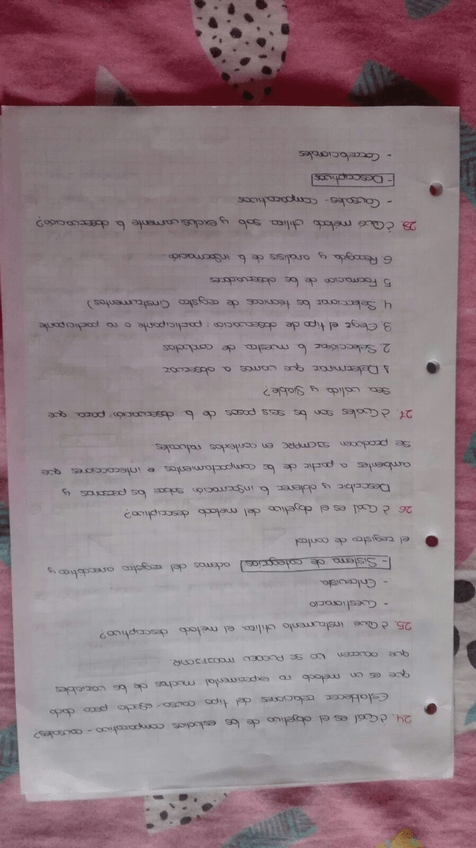 24. ¿Cual es el objetivo de los estudios comparativo - causales?
Establecer relaciones del tipo causa- efecto pero dado
que es un metodo no experimental muchas de las variables
que aducen no se PUEDEN MODIFICAR
25. ¿Que instrumento utiliza el metodo descriptivo?
- Cuestionario
- Entrevista
- Sistema de categorias ademas del registro anecdotico y
el registro de control
26. ¿Cual es el objetivo del metodo descriptivo?
Describir y obtener la información sobre las personas y
ambientes a partir de los comportamientos e interacciones que
se producen SIEMPRE en contextos naturales
27. ¿Cuales son los seis pasos de la observación para que
sea valida y fiable?
1 Determinar que vamos a observar
2. Seleccionar la muestra de conductas
3. Elegir el tipo de observación: participante o no participante
4. Seleccionar las tecnicas de registro (instrumentos)
5 Formacion de los observadores
6 Recogida y analisis de la información
28. ¿Que metodo utiliza solo y exclusivamente la observación?
- Causales - comparativos
- Descriptivos
- Correlacionales